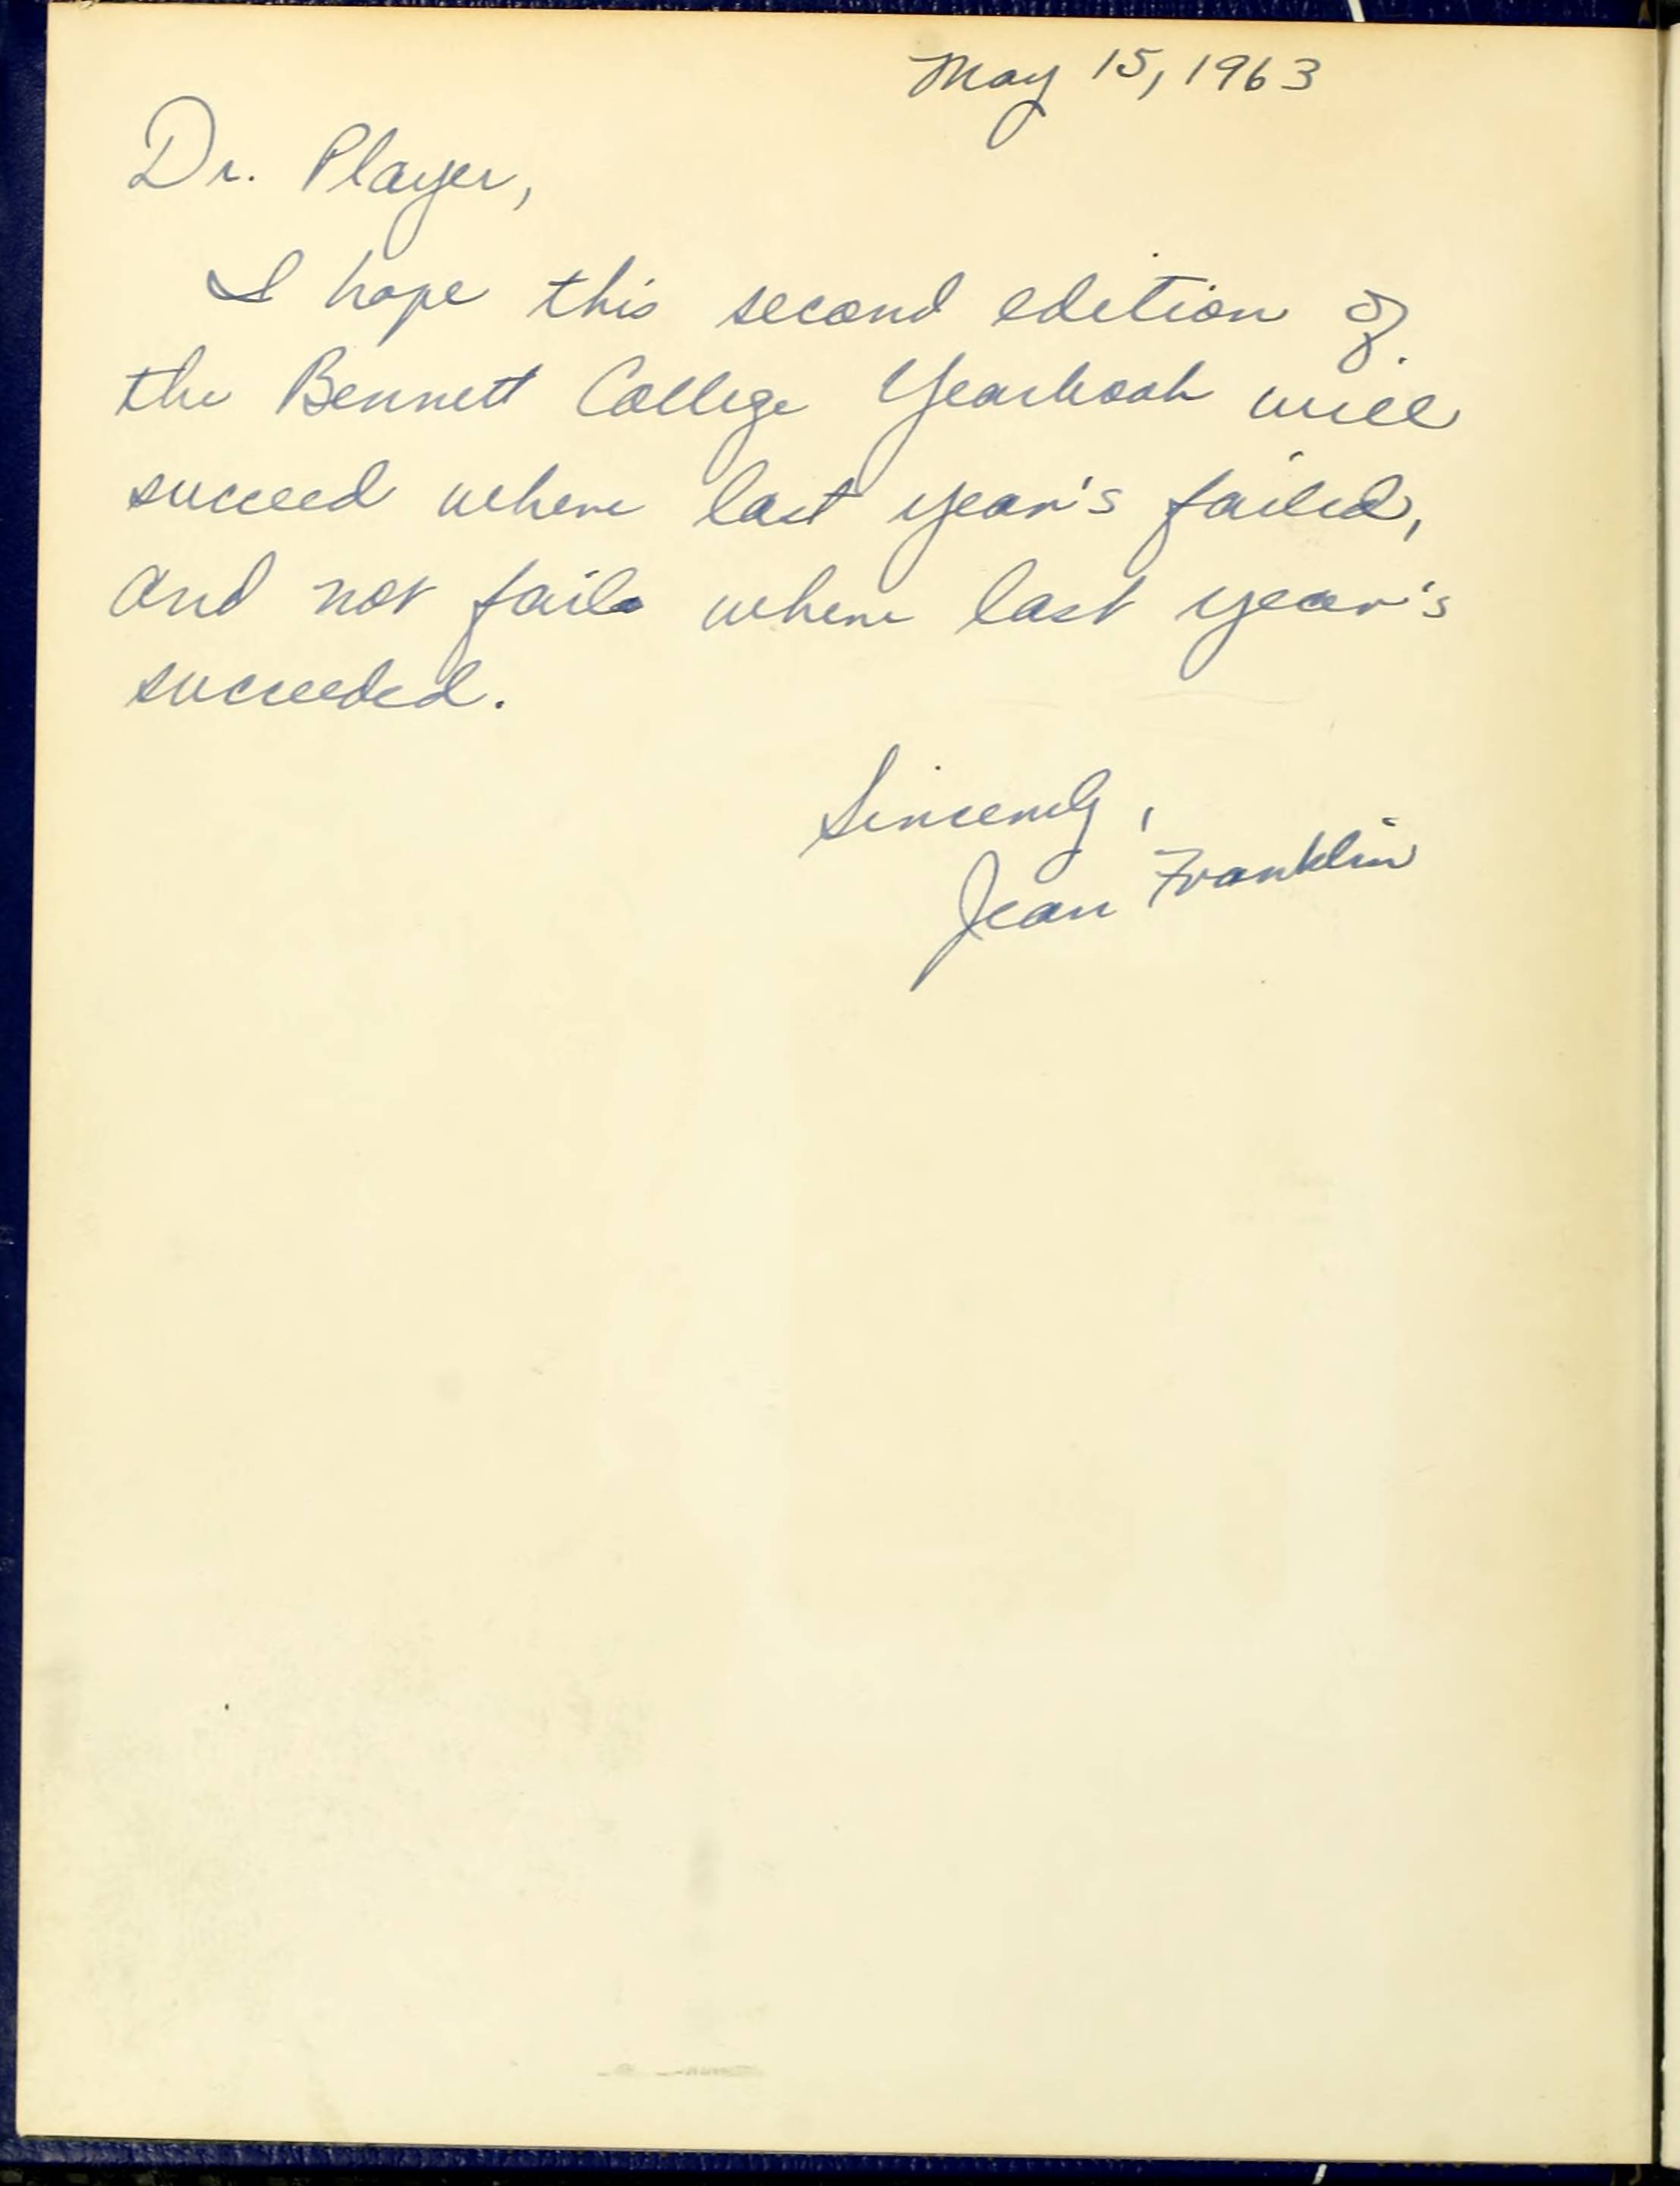 May 15, 1963
Dr. Player,
I hope this second edition of
the Bennett College Yearbook will
succeed where last year's failed,
and not fail where last year's
succeeded.
Sincerely,
Jean Franklin